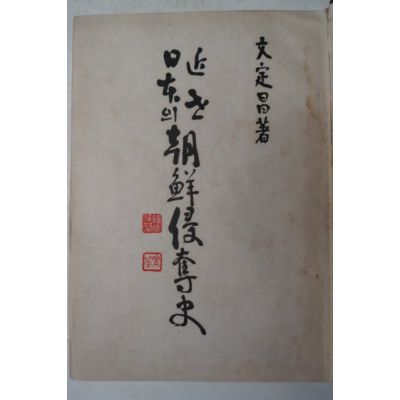 文定昌著
近世
日本의
朝鮮侵奪史